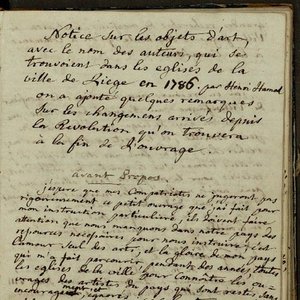 Notice sur les objets d'art
avec le nom des auteurs, qui se
trouvoient dans les eglises de la
ville de Liege en 1786. par Henri Hamal
on a ajouté quelques remarques
sur les changemens arrivés depuis
la Revolution qu'on trouvera
à la fin de l'ouvrage.
avant Propos
j'espere que mes Compatriotes ne jugeront pas
rigoureusement ce petit ouvrage que j'ai fait pour
mon instruction particuliere, ils doivent faire
attention que nous manquons dans notre pays des
resources necessaires pour nous instruire, c'est
l'amour seul des art, et la gloire de mon pays
qui m'a fait parcourir pendant des années, toutes
les eglises de la ville pour connaître les ou-
vrages des artistes du pays qui sont restés, sans
encouragement ignorés